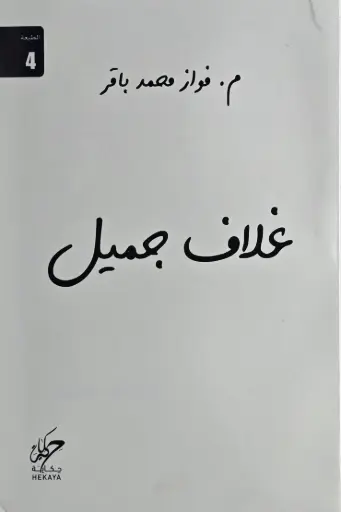 الطبعة
4
م. فواز محمد باقر
غلاف جميل
حكاية
HEKAYA